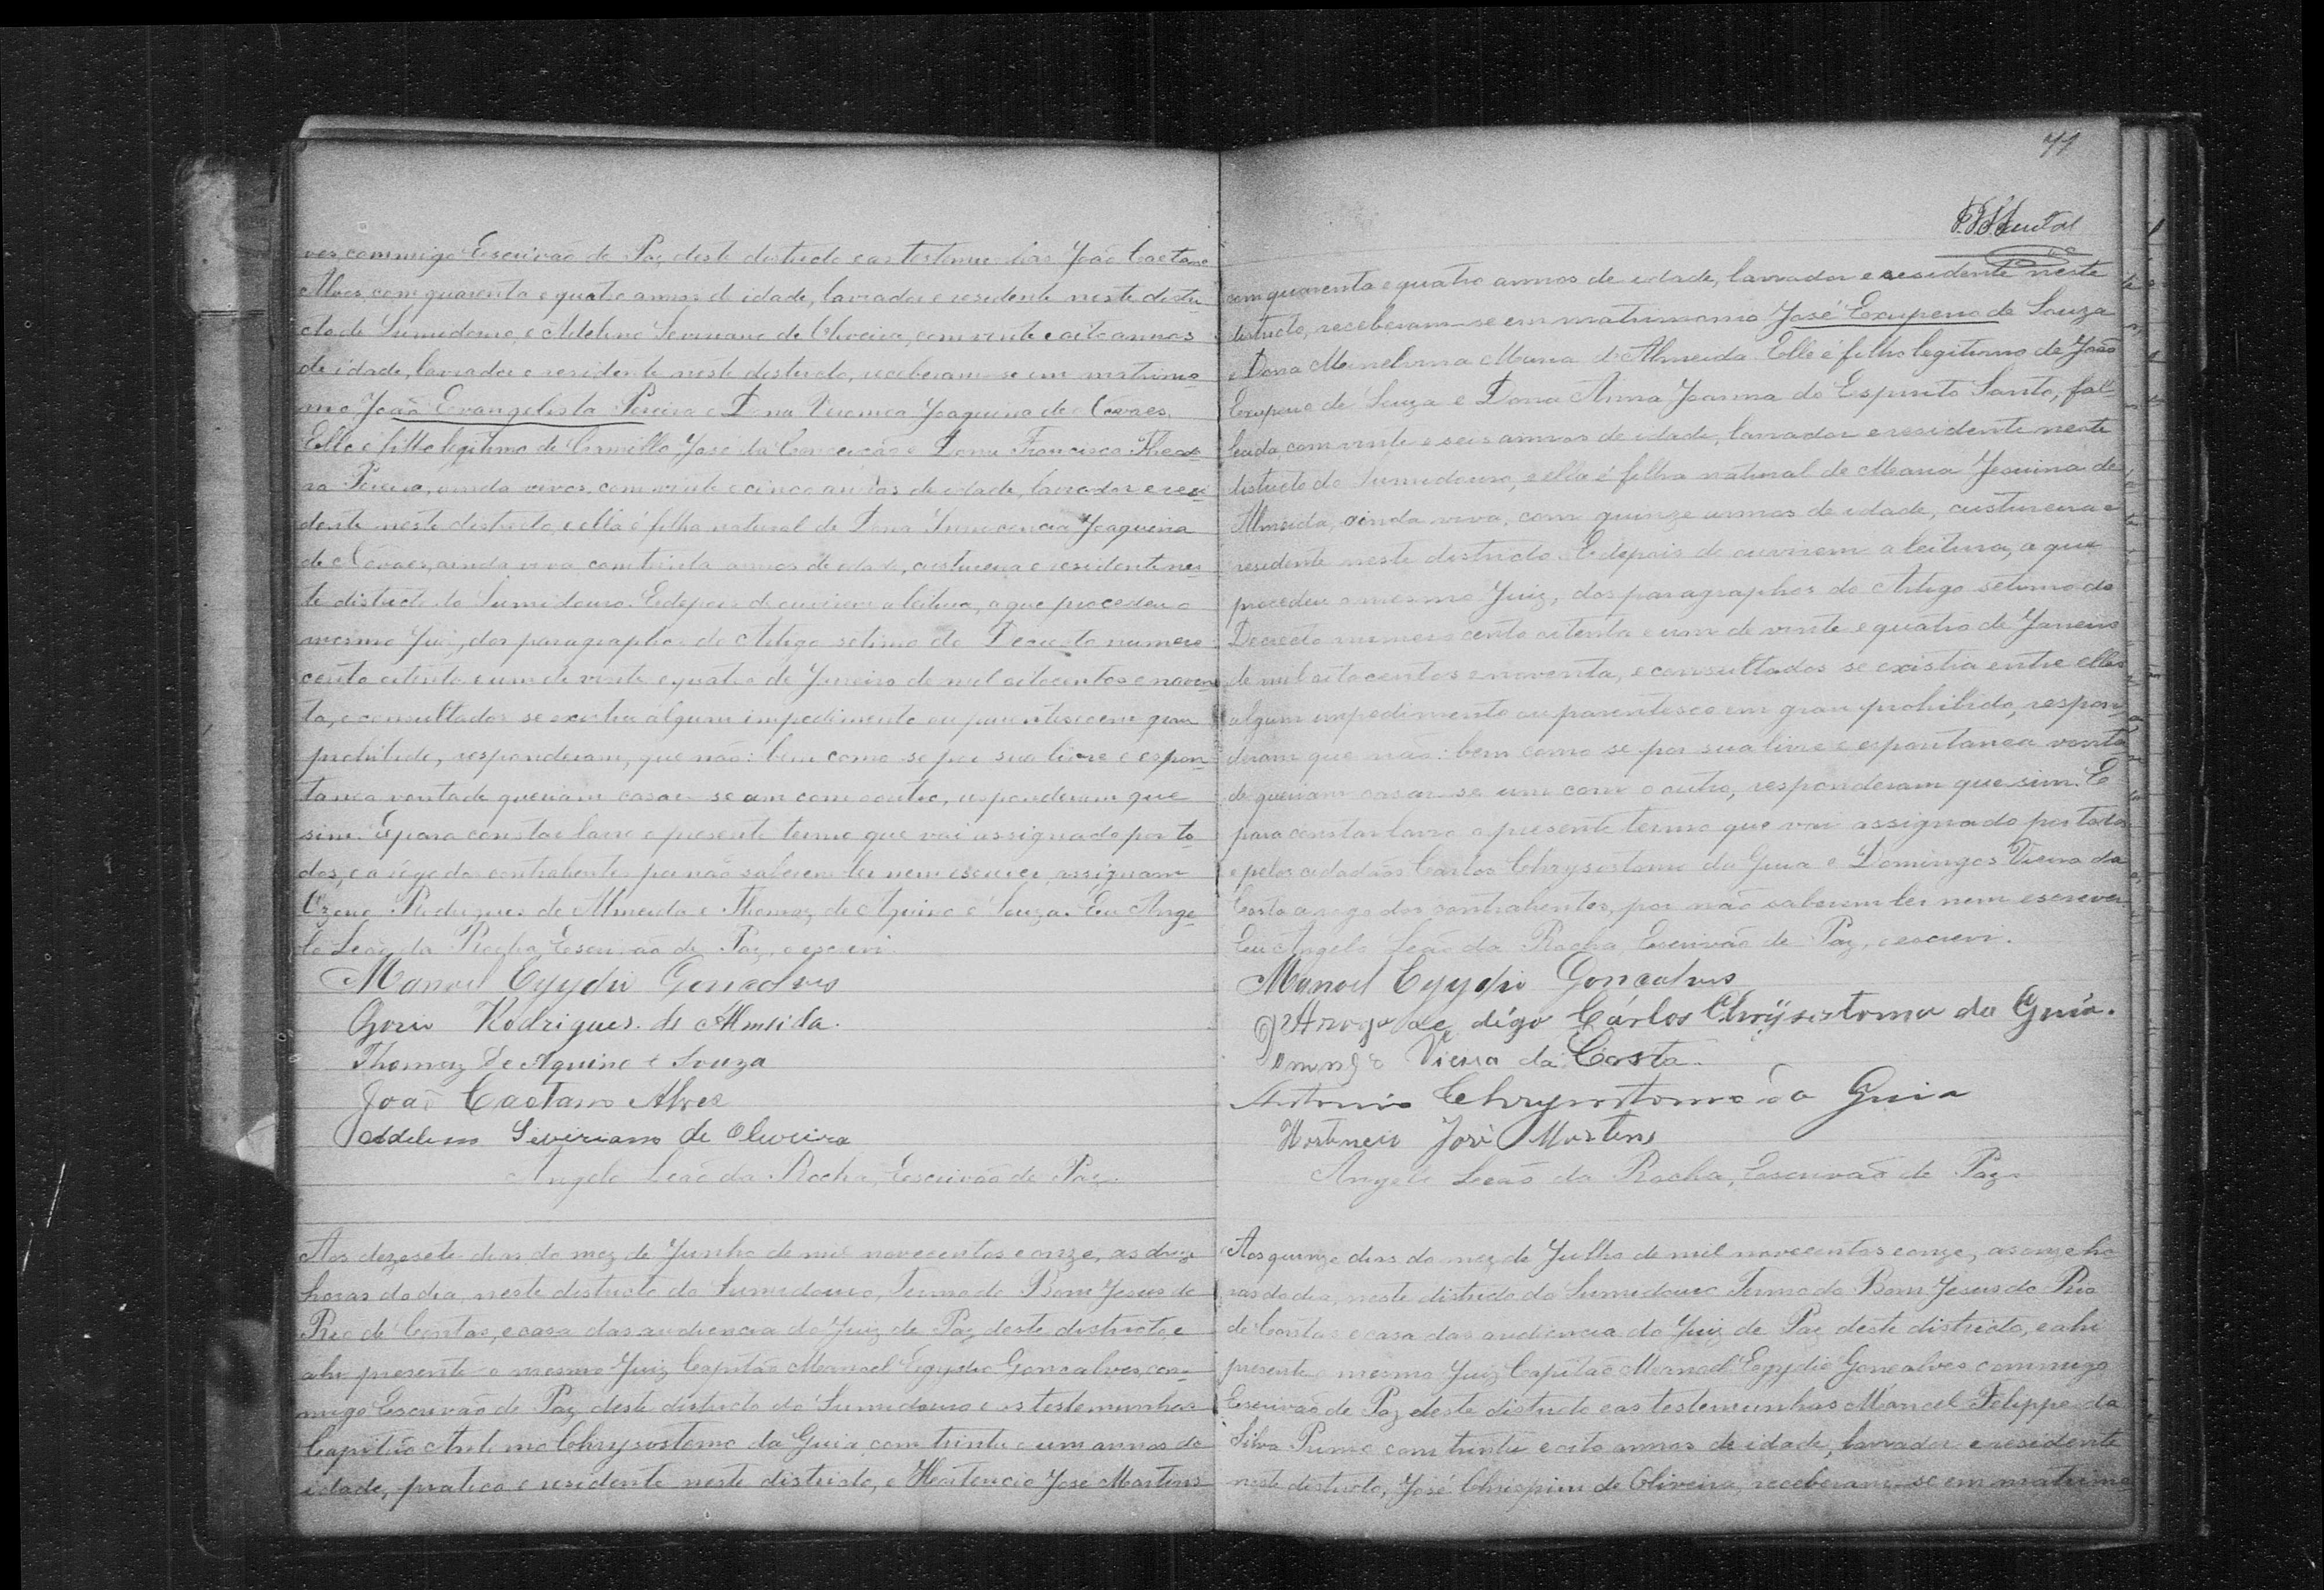 ves commigo Escrivão de Paz deste districto e as testemunhas João Caetano
Alves com quarenta e quatro annos de idade, lavrador e residente neste distri-
cto do Sumidouro, e Adelino Severiano de Oliveira, com vinte e oito annos
de idade, lavrador e residente neste districto, receberam-se em matrimo-
nio João Evangelista Pereira e Dona Veronica Joaquina de Novaes.
Elle é filho legitimo de Camillo José da Conceição e Dona Francisca
Pereira, ainda vivos, com vinte e cinco annos de idade, lavrador e resi-
dente neste districto, e ella é filha natural de Dona Innocencia Joaquina
de Novaes, ainda viva com trinta annos de idade, custureira e residente nes-
te districto do Sumidouro. E depois de ouvirem a leitura, a que procedeu o
mesmo Juiz, dos paragraphos do Artigo setimo do Decreto numero
cento oitenta e um de vinte e quatro de Janeiro de mil oitocentos e noven-
ta, e consultados se existia algum impedimento ou parentesco em grau
prohibido, responderam, que não: bem como se por sua livre e espon-
tanea vontade queriam casar-se um com o outro, responderam que
sim. E para constar lavro o presente termo que vai assignado por to-
dos, e a rôgo dos contrahentes por não saberem ler nem escrever, assignam
Ozorio Rodrigues de Almeida e Thomaz de Aquino e Souza. Eu Ange-
lo Leão da Rocha, Escrivão de Paz, o escrevi.
Manoel Egydio Goncalves
Ozorio Rodrigues de Almeida.
Thomaz de Aquino e Souza
João Caetano Alves
Adelino Siviriano de Oliveira
Angelo Leão da Rocha, Escrivão de Paz.
Aos dezesete dias do mez de Junho de mil novecentos e onze, as doze
horas do dia, neste districto do Sumidouro, Termo do Bom Jesus do
Rio de Contas, e casa das audiencia do Juiz de Paz deste districto, e
ahi presente o mesmo Juiz Capitão Manoel Egydio Goncalves, com-
migo Escrivão de Paz deste districto do Sumidouro e as testemunhas
Capitão Antonio Chrysostomo da Guia, com trinta e um annos de
idade, pratico e residente neste districto, e Hortencio José Martins
71
com quarenta e quatro annos de idade, lavrador e residente neste
districto, receberam-se em matrimonio José Exuperio de Souza
e Dona Maria d'Almeida. Elle é filho legitimo de João
Exuperio de Souza e Dona Anna Joanna do Espirito Santo, fal-
lecida, com vinte e seis annos de idade, lavrador e residente neste
districto do Sumidouro, e ella é filha natural de Maria Jesuina de
Almeida, ainda viva, com quinze annos de idade, custureira e
residente neste districto. E depois de ouvirem a leitura, a que
procedeu o mesmo Juiz, dos paragraphos do Artigo setimo do
Decreto numero cento oitenta e um de vinte e quatro de Janeiro
de mil oitocentos e noventa, e consultados se existia entre elles
algum impedimento ou parentesco em grau prohibido, respon-
deram que não: bem como se por sua livre e espontanea vonta-
de queriam casar-se um com o outro, responderam que sim. E
para constar lavro o presente termo que vai assignado por todos
e pelos cidadãos Carlos Chrysostomo da Guia e Domingos Vieira da
Costa a rogo dos contrahentes, por não saberem ler nem escrever.
Eu Angelo Leão da Rocha, Escrivão de Paz, o escrevi.
Manoel Egydio Goncalves
Arrogo de digo Cárlos Chrÿsostomo da Guia.
Domingo Vieira da Costa.
Antonio Chrysostomo da Guia
Hortencio José Martins
Angelo Leão da Rocha, Escrivão de Paz
Aos quinze dias do mez de Julho de mil novecentos e onze, as onze ho-
ras do dia, neste districto do Sumidouro Termo do Bom Jesus do Rio
de Contas e casa das audiencia do Juiz de Paz deste districto, e ahi
presente o mesmo Juiz Capitão Manoel Egydio Goncalves commigo
Escrivão de Paz deste districto e as testemunhas Manoel Felippe da
Silva Primo com trinta e oito annos de idade, lavrador e residente
neste districto, José Chrispim de Oliveira, receberam-se em matrimo-